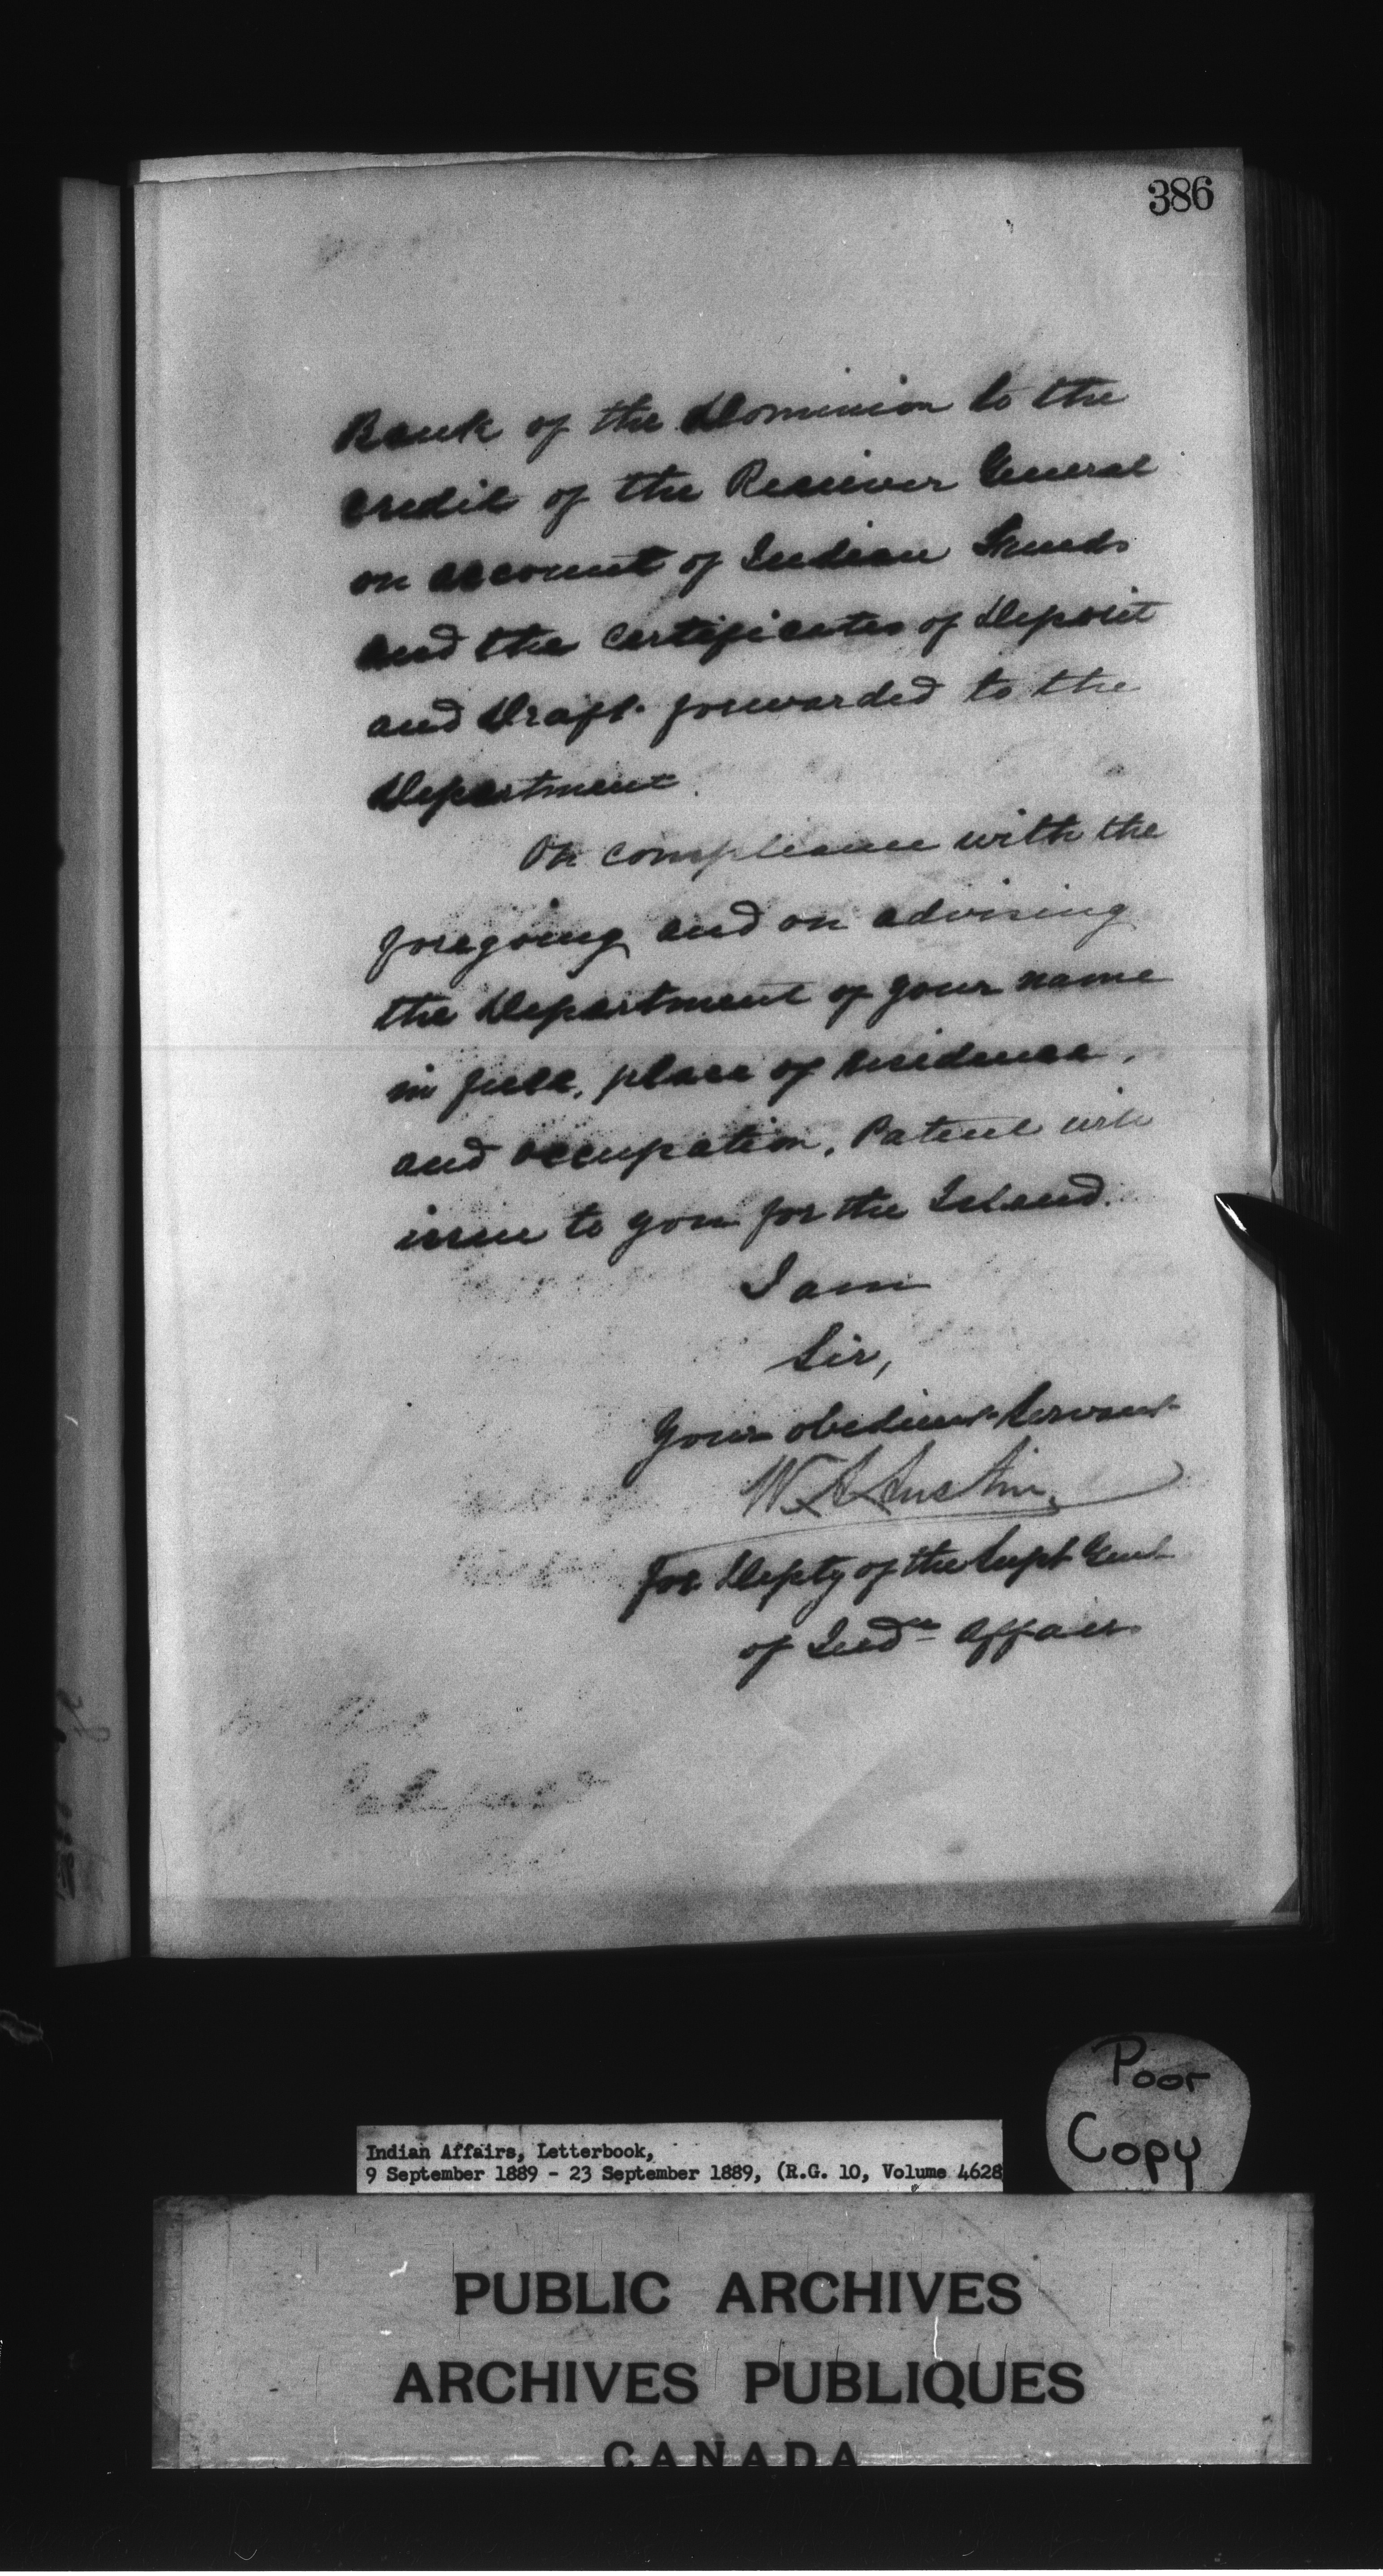 386
Bank of the Dominion to the
credit of the Receiver General
on account of Indian Funds
and the certificates of Deposit
and Draft forwarded to the
Department.
On compliance with the
foregoing and on advising
the Department of your name
in full, place of residence,
and occupation, Patent will
issue to you for the Island.
I am
Sir,
Your obedient Servant
W. A. Austin.
for Depty of the Supt Genl
of Indn Affairs
Poor
Copy
Indian Affairs, Letterbook,
9 September 1889 - 23 September 1889, (R.G. 10, Volume 4628
PUBLIC ARCHIVES
ARCHIVES PUBLIQUES
CANADA